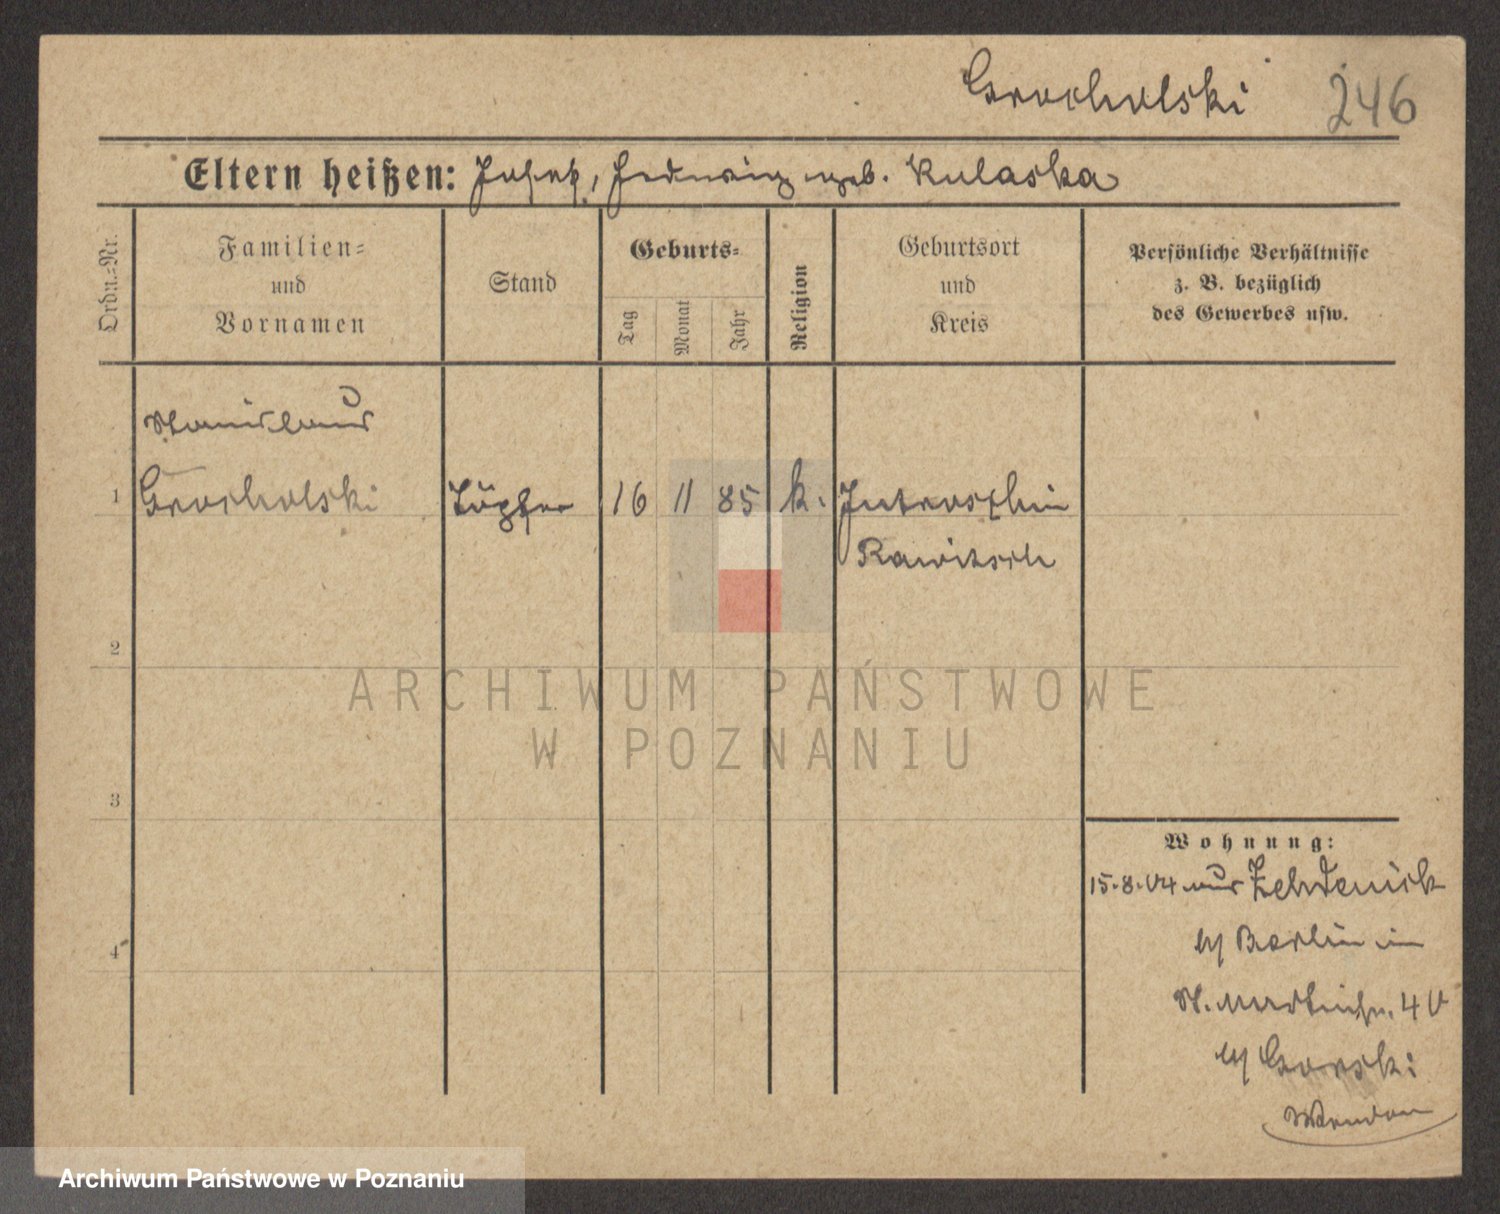 Grocholski 246
Eltern heißen: Josef, Hedwig geb. Kulaska
Ordn.=Nr.
Familien=
und
Vornamen
Stand
Geburts=
Tag
Monat
Jahr
Religion
Geburtsort
und
Kreis
Persönliche Verhältnisse
z. B. bezüglich
des Gewerbes usw.
Stanislaus
1 Grocholski Töpfer 16 11 85 k. Jutroschin
Rawitsch
2
ARCHIWUM PAŃSTWOWE
W POZNANIU
3
Wohnung:
15.8.04 aus Zehdenick
b/ Berlin in
St. Martinstr. 40
b/ Gorski
4
Archiwum Państwowe w Poznaniu